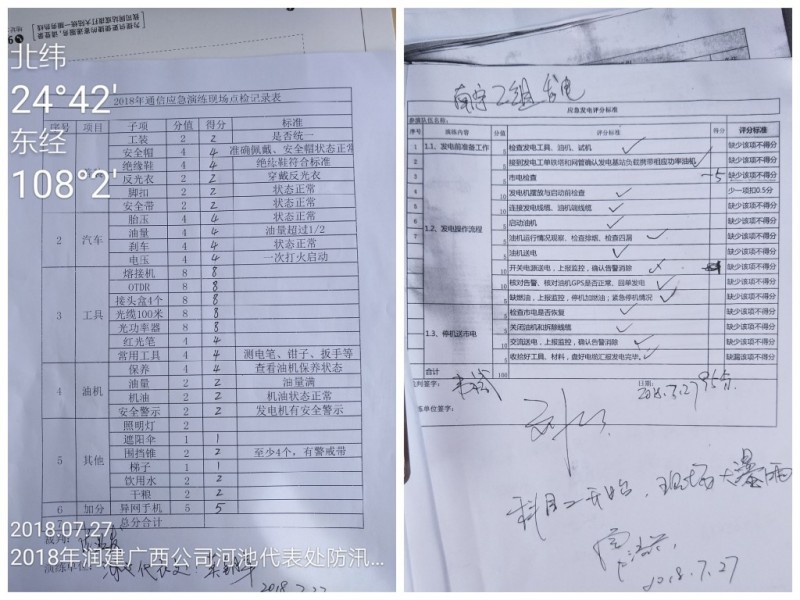 北纬
24°42'
东经
108°2'
2018年通信应急演练现场点检记录表
序号 项目 子项 分值 得分 标准
工装 2 2 是否统一
安全帽 4 4 准确佩戴、安全帽状态正常
绝缘鞋 4 4 绝缘鞋符合标准
反光衣 2 2 穿戴反光衣
脚扣 2 2 状态正常
安全带 2 2 状态正常
2 汽车 胎压 4 4 状态正常
油量 4 4 油量超过1/2
刹车 4 4 状态正常
电压 4 4 一次打火启动
3 工具 熔接机 8 8
OTDR 8 8
接头盒4个 8 8
光缆100米 8 8
光功率器 8 8
红光笔 4 4
常用工具 4 4 测电笔、钳子、扳手等
4 油机 保养 4 4 查看油机保养状态
油量 2 2 油量满
机油 2 2 机油状态正常
安全警示 2 2 发电机有安全警示
5 其他 照明灯 2
遮阳伞 1 1
围挡锥 2 2 至少4个，有警戒带
梯子 1 1
饮用水 2 2
干粮 2 2
6 加分 异网手机 5 5
总分合计
2018.07.27
2018年润建广西公司河池代表处防汛...
演练单位
南宁工组发电
应急发电评分标准
参演队伍名称：
序号 演练内容 分值 评分标准 得分 评分标准
1 1.1、发电前准备工作 检查发电工具、油机、试机 缺少该项不得分
2 接到发电工单联塔和网管确认发电基站负载携带相应功率油机 缺少该项不得分
3 市电检查 -5 缺少该项不得分
4 1.2、发电操作流程 发电机摆放与启动前检查 少一项扣0.5分
5 连接发电线缆、油机端线缆 缺少该项不得分
6 启动油机 缺少该项不得分
7 油机运行情况观察、检查排烟、检查四漏 缺少该项不得分
油机送电 缺少该项不得分
开关电源送电，上报监控，确认告警消除 缺少该项不得分
核对告警、核对油机GPS是否正常、回单发电 缺少该项不得分
缺燃油，上报监控，停机加燃油；紧急停机情况 缺少该项不得分
1.3、停机送市电 检查市电是否恢复 缺少该项不得分
关闭油机和拆除线缆 缺少该项不得分
交流送电，上报监控，确认告警消除 缺少该项不得分
收拾好工具、材料，盘好电缆汇报发电完毕。 缺漏该项不得分
合计 100
裁判签字： 日期： 2018.7.27
练单位签字：
科目二开始，现场大暴雨
2018.7.27